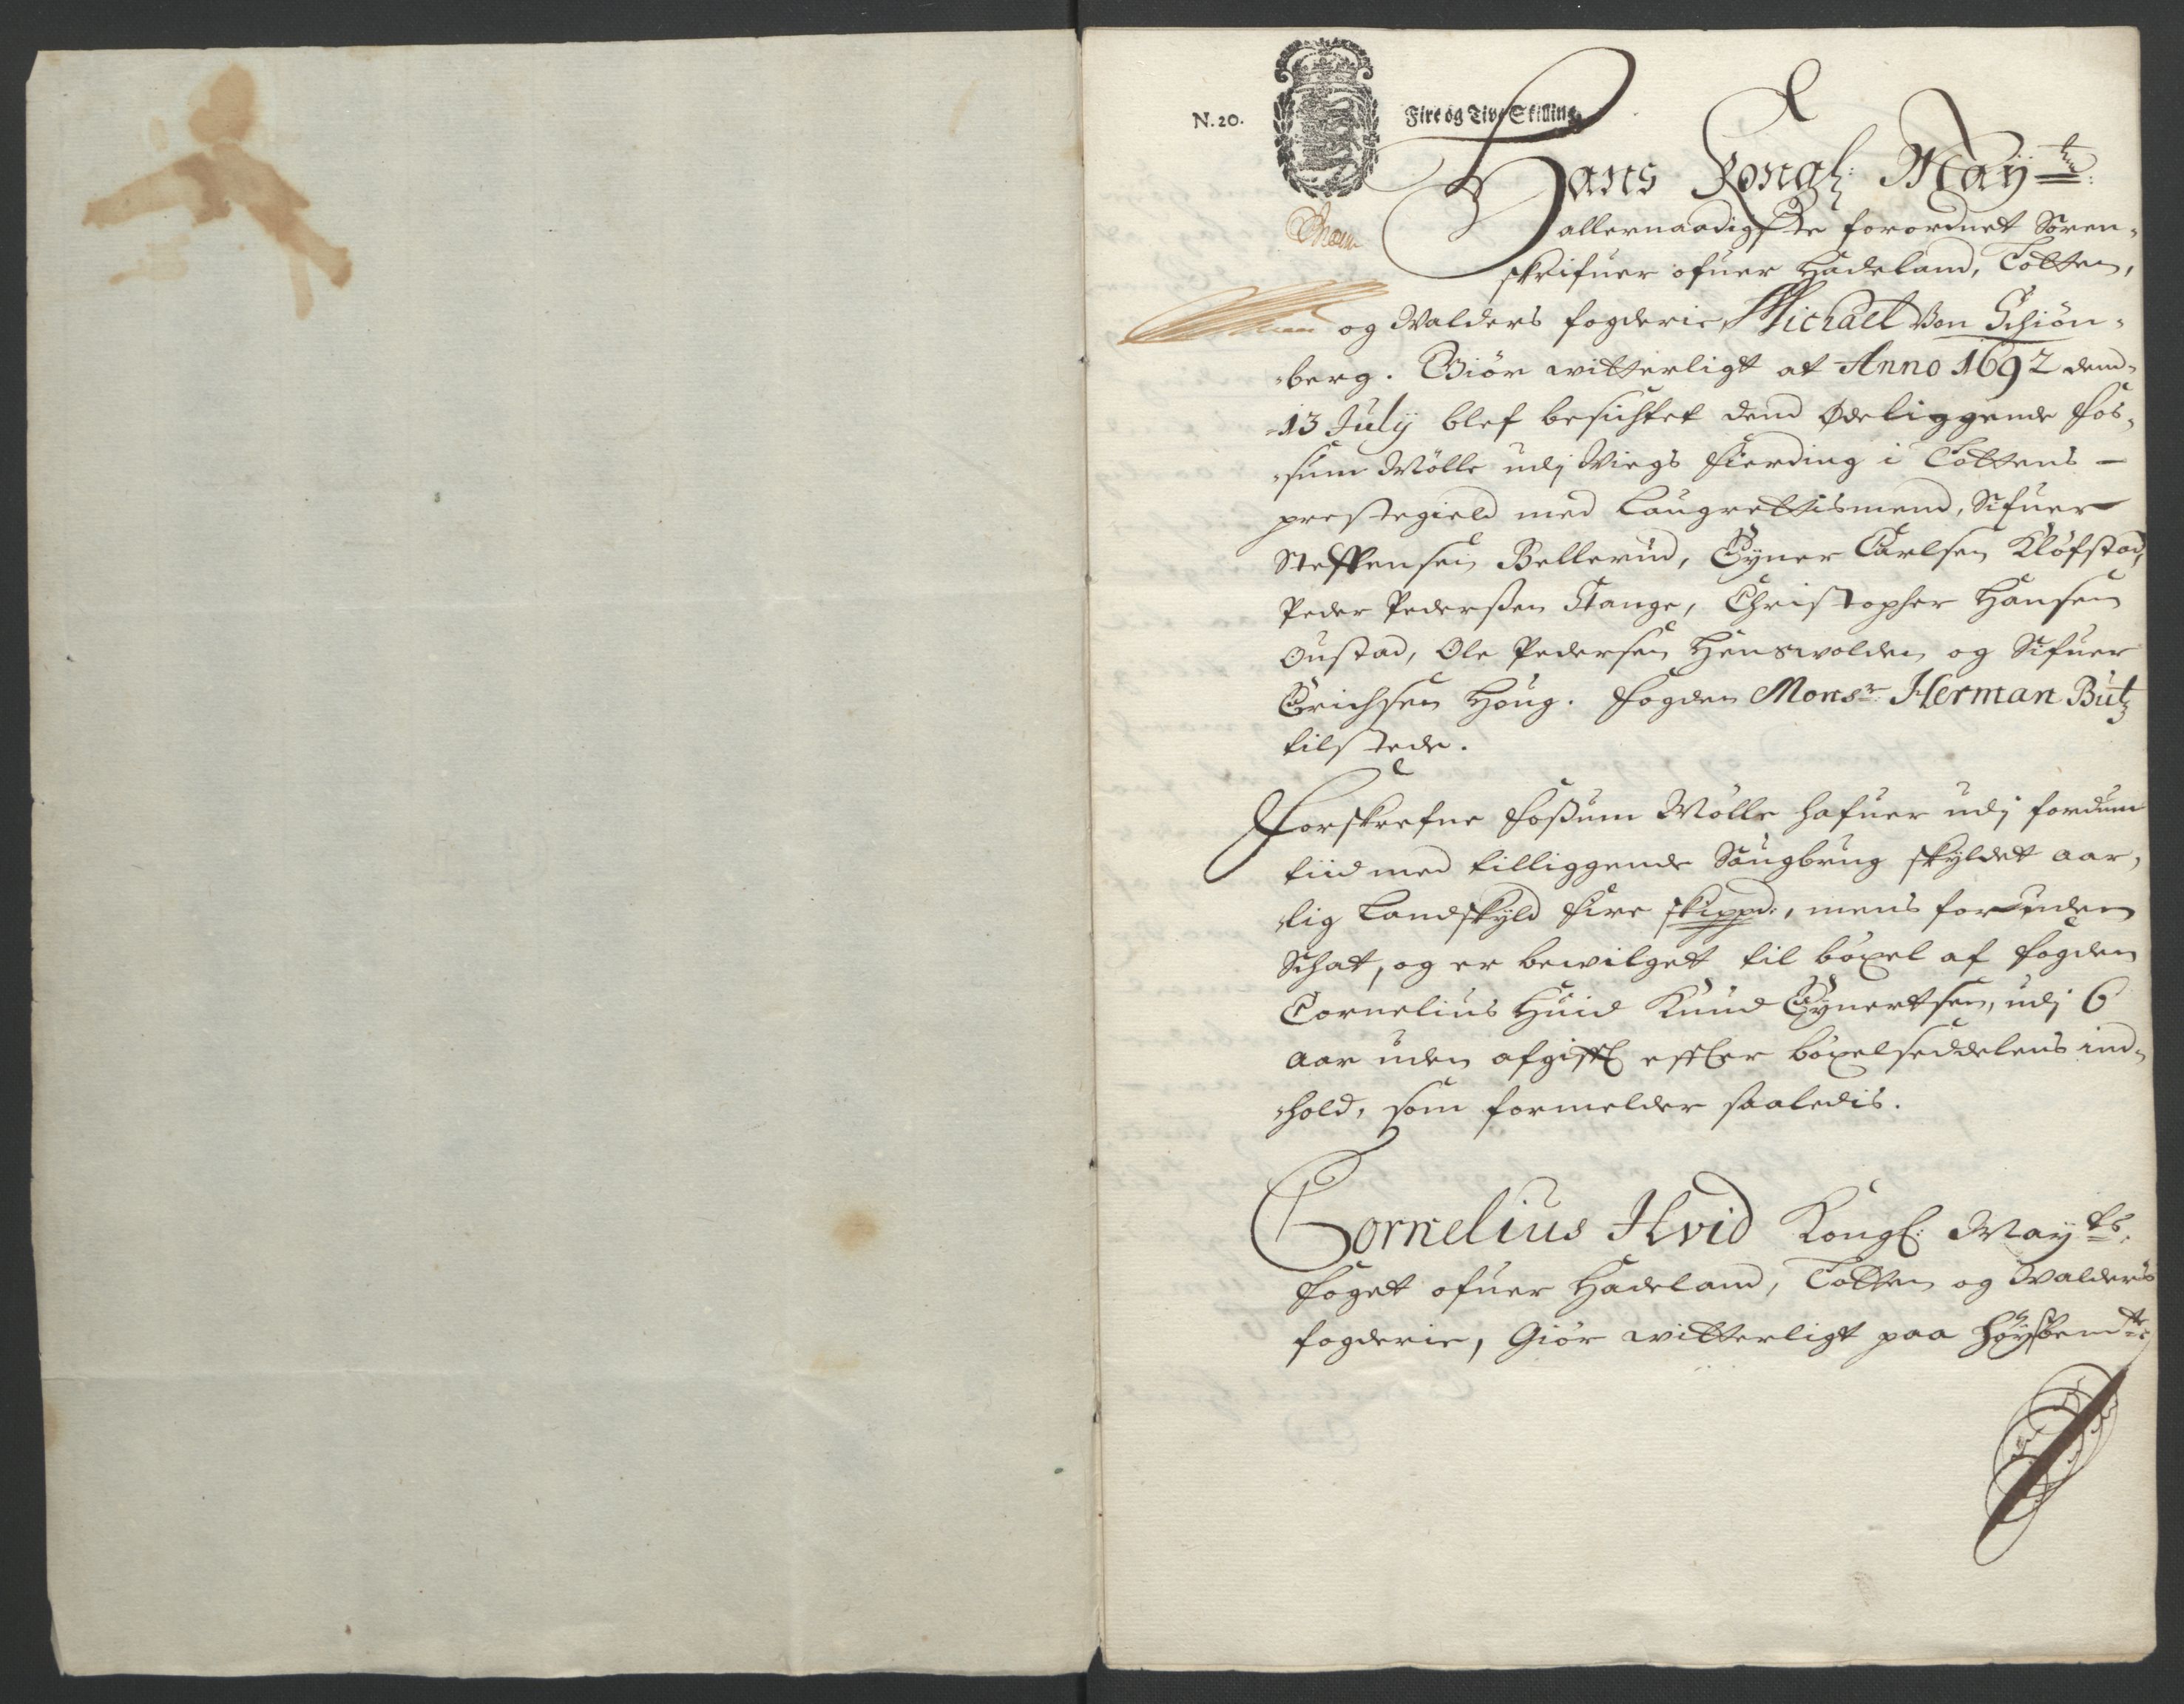 N. 20.
Fire og Tive Skilling
Hans Kongl: May:tz
allernaadigste forordnet Soren¬
skrifuer ofuer Hadeland, Totten,
og Walders fogderie, Michael Von Schiön¬
berg. Giör witterligt at Anno 1692 dend
13 July blef besichtet dend Ødeliggende Fos¬
sum Mölle udj Wiegs Fierding i Tottens
prestegield med Laugrettismend, Sifuer
Steffensen Bellerud, Eyner Carlsen Klöfstad,
Peder Pederssen Stange, Christopher Hansen
Oustad, Ole Pedersen Henswolden og Sifuer
Erichsen Houg. Fogden Monsr: Herman Bütz
tilstede.
Forskrefne Fossum Mölle hafuer udj fordum
tiid med tilliggende Saugbrug skyldet aar¬
lig Landskyld Fire skippd:, mens foruden
Schat, og er bewilget til böxel af fogden
Cornelius Huid Knud Eynertsen, udj 6
aar uden afgifft effter böxelseddelens ind¬
hold, som formelder saaledis.
Cornelius Hvid Kongl: Mayts:
foget ofuer Hadeland, Totten og Walders
fogderie, Giör witterligt paa höystbemte: